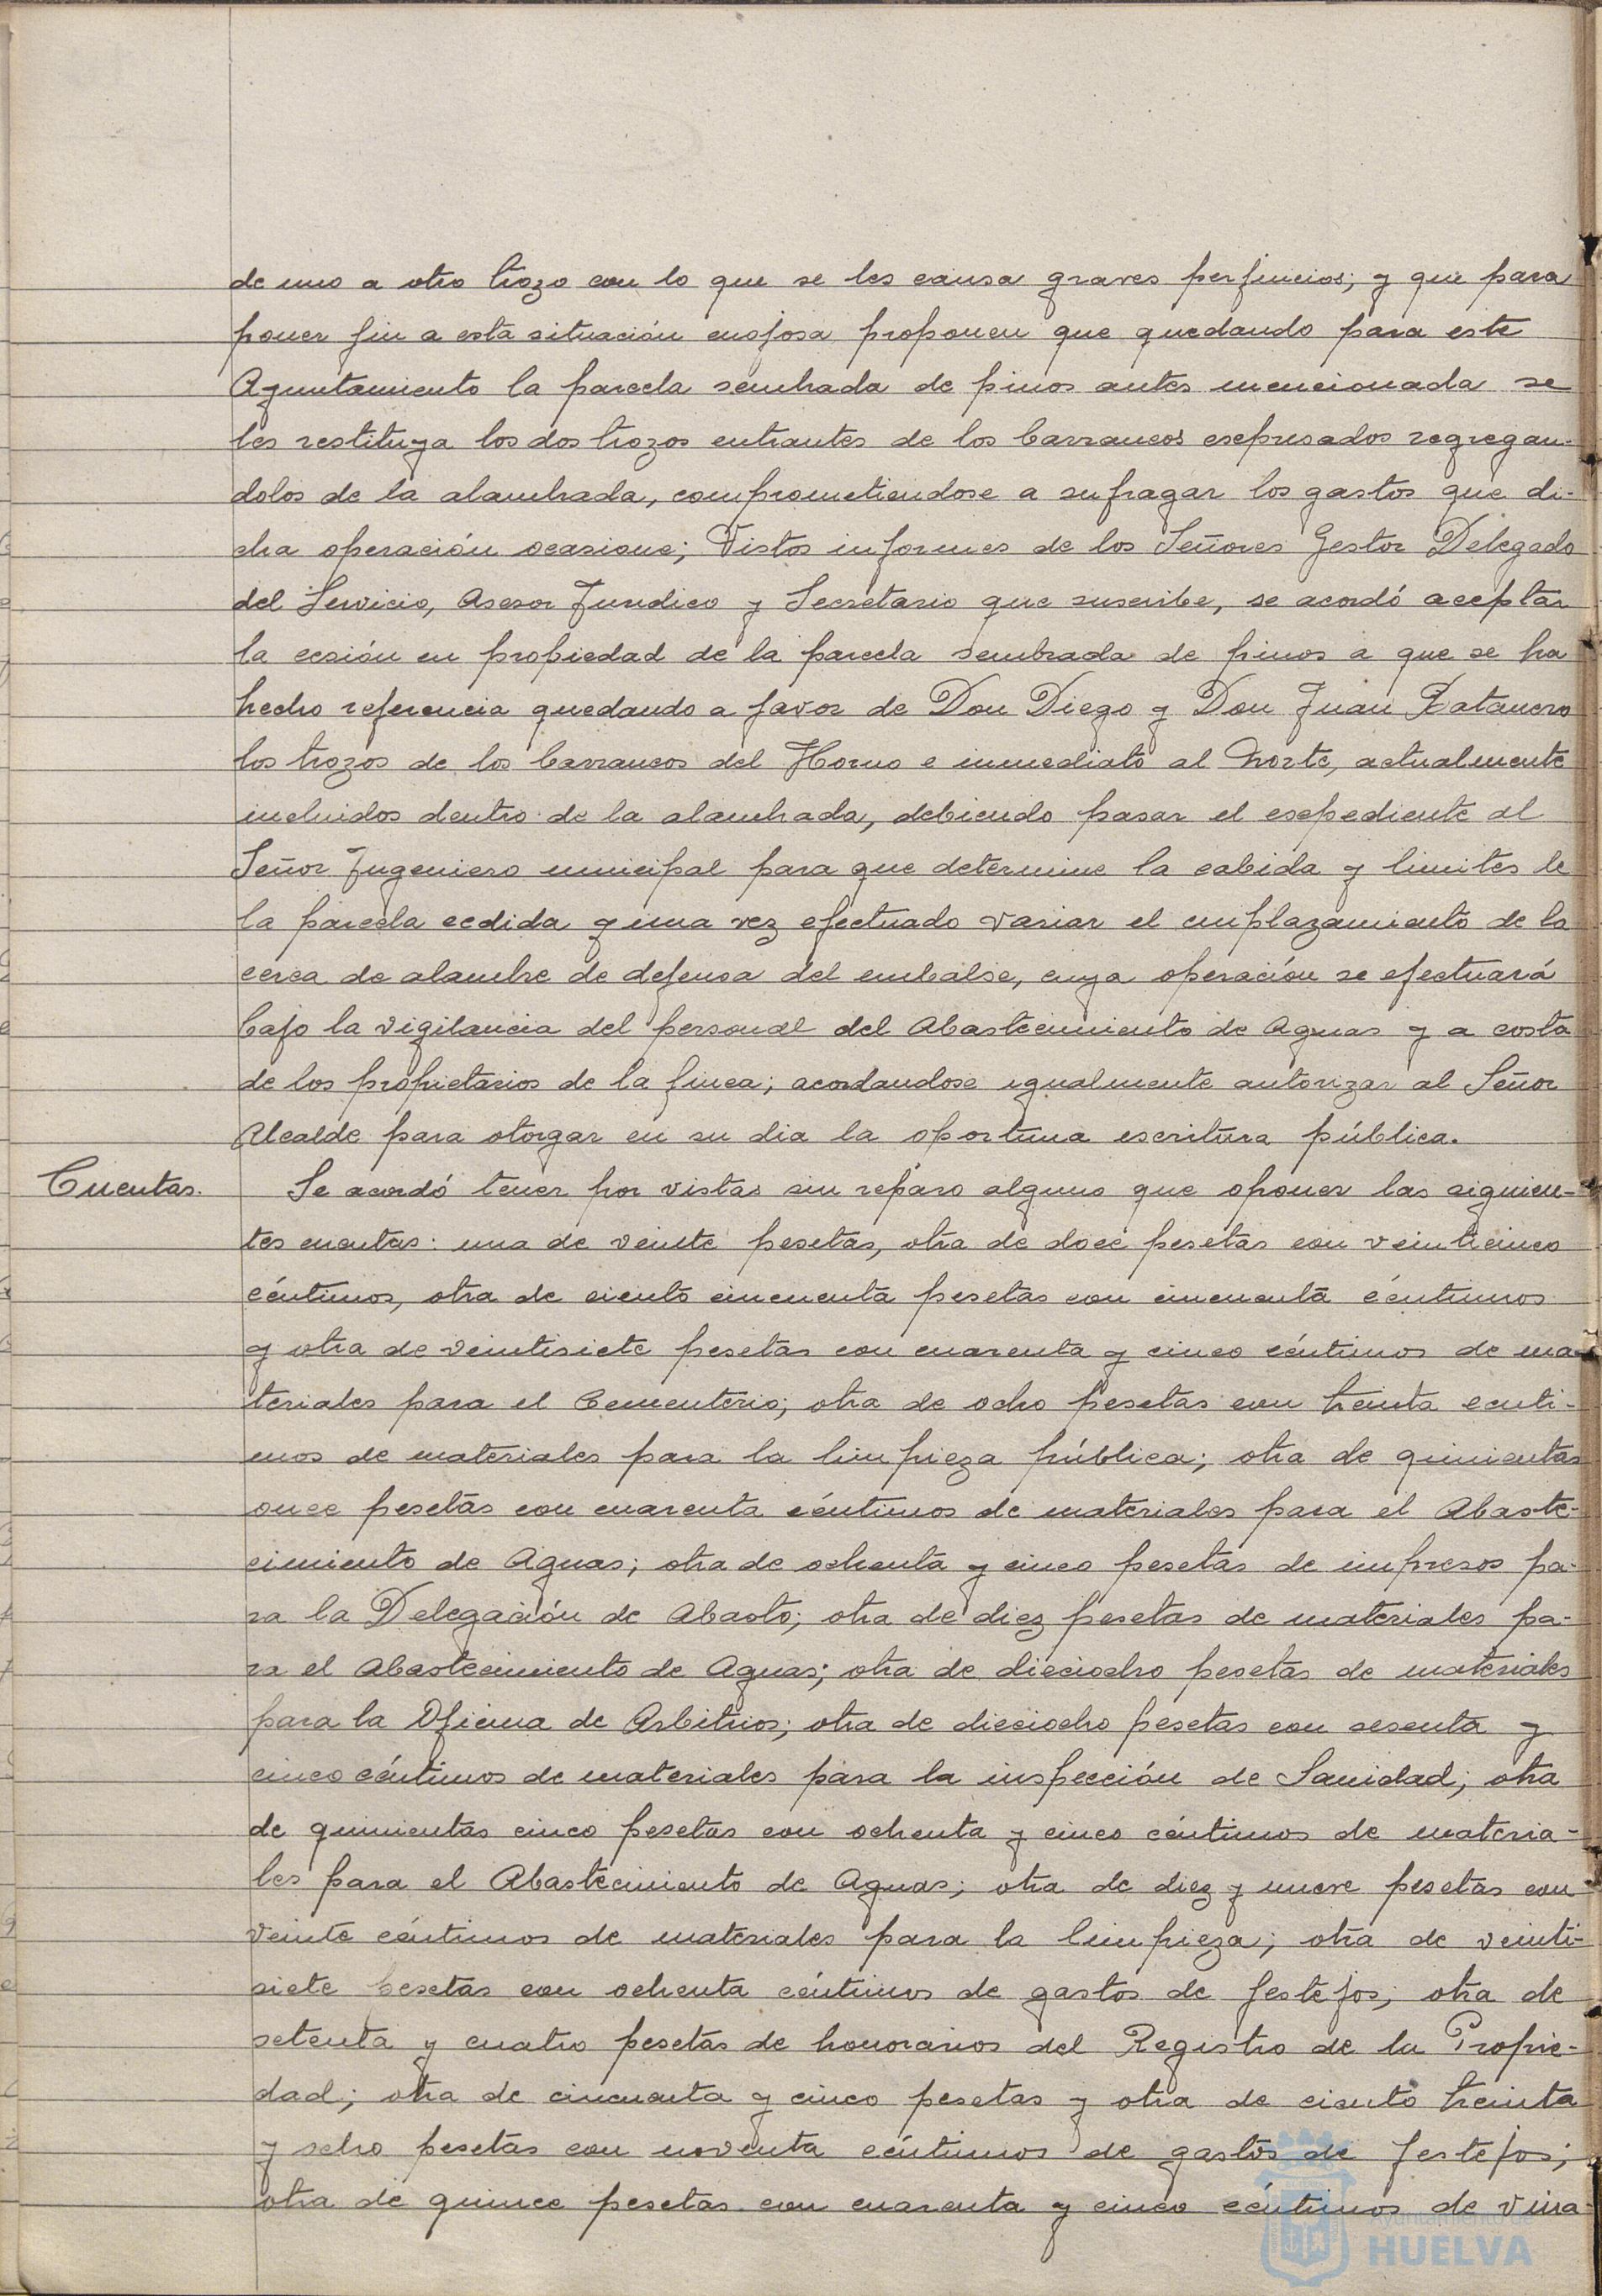 de uno a otro trozo con lo que se les causa graves perjuicios; y que para
poner fin a esta situación enojosa proponen que quedando para este
Ayuntamiento la parcela sembrada de pinos antes mencionada se
les restituya los dos trozos entrantes de los barrancos esepresados regregan-
dolos de la alambrada, comprometiendose a sufragar los gastos que di-
cha operación ocasione; Vistos informes de los Señores Gestor Delegado
del Servicio, Asesor Juridico y Secretario que suscribe, se acordó aceptar
la cesión en propiedad de la parcela sembrada de pinos a que se ha
hecho referencia quedando a favor de Don Diego y Don Juan Batanero
los trozos de los barrancos del Horno e inmediato al Norte, actualmente
incluidos dentro de la alambrada, debiendo pasar el esepediente al
Señor Ingeniero municipal para que determine la cabida y limites de
la parcela cedida y una vez efectuado variar el emplazamiento de la
cerca de alambre de defensa del embalse, cuya operación se efectuará
bajo la vigilancia del personal del Abastecimiento de Aguas y a costa
de los propietarios de la finca; acordandose igualmente autorizar al Señor
Alcalde para otorgar en su dia la oportuna escritura pública.
Cuentas. Se acordó tener por vistas sin reparo alguno que oponer las siguien-
tes cuentas: una de veinte pesetas, otra de doce pesetas con veinticinco
céntimos, otra de ciento cincuenta pesetas con cincuenta céntimos
y otra de veintisiete pesetas con cuarenta y cinco céntimos de ma-
teriales para el Cementerio; otra de ocho pesetas con treinta centi-
mos de materiales para la limpieza pública; otra de quinientas
once pesetas con cuarenta céntimos de materiales para el Abaste-
cimiento de Aguas; otra de ochenta y cinco pesetas de impresos pa-
ra la Delegación de Abasto; otra de diez pesetas de materiales pa-
ra el Abastecimiento de Aguas; otra de dieciocho pesetas de materiales
para la Oficina de Arbitrios; otra de dieciocho pesetas con sesenta y
cinco céntimos de materiales para la inspección de Sanidad; otra
de quinientas cinco pesetas con ochenta y cinco céntimos de materia-
les para el Abastecimiento de Aguas; otra de diez y nueve pesetas con
veinte céntimos de materiales para la limpieza; otra de veinti-
siete pesetas con ochenta céntimos de gastos de festejos; otra de
setenta y cuatro pesetas de honorarios del Registro de la Propie-
dad; otra de cincuenta y cinco pesetas y otra de ciento treinta
y ocho pesetas con noventa céntimos de gastos de festejos;
otra de quince pesetas con cuarenta y cinco céntimos de vina-
Ayuntamiento de
HUELVA